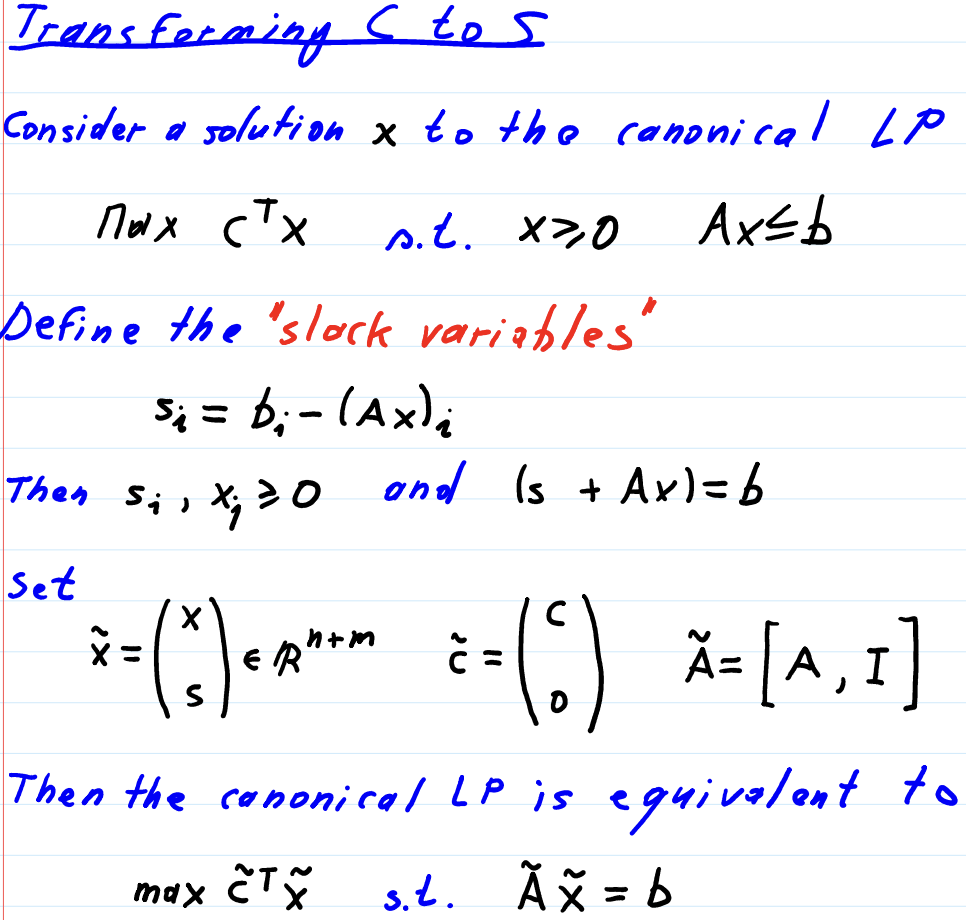 Transforming C to S
Consider a solution x to the canonical LP
Max cᵀx s.t. x≥0 Ax≤b
Define the "slack variables"
sᵢ = bᵢ - (Ax)ᵢ
Then sᵢ, xⱼ ≥ 0 and (s + Ax) = b
Set
x̃ = (x s) ∈ ℝⁿ⁺ᵐ c̃ = (c 0) Ã = [A, I]
Then the canonical LP is equivalent to
max c̃ᵀx̃ s.t. Ãx̃ = b